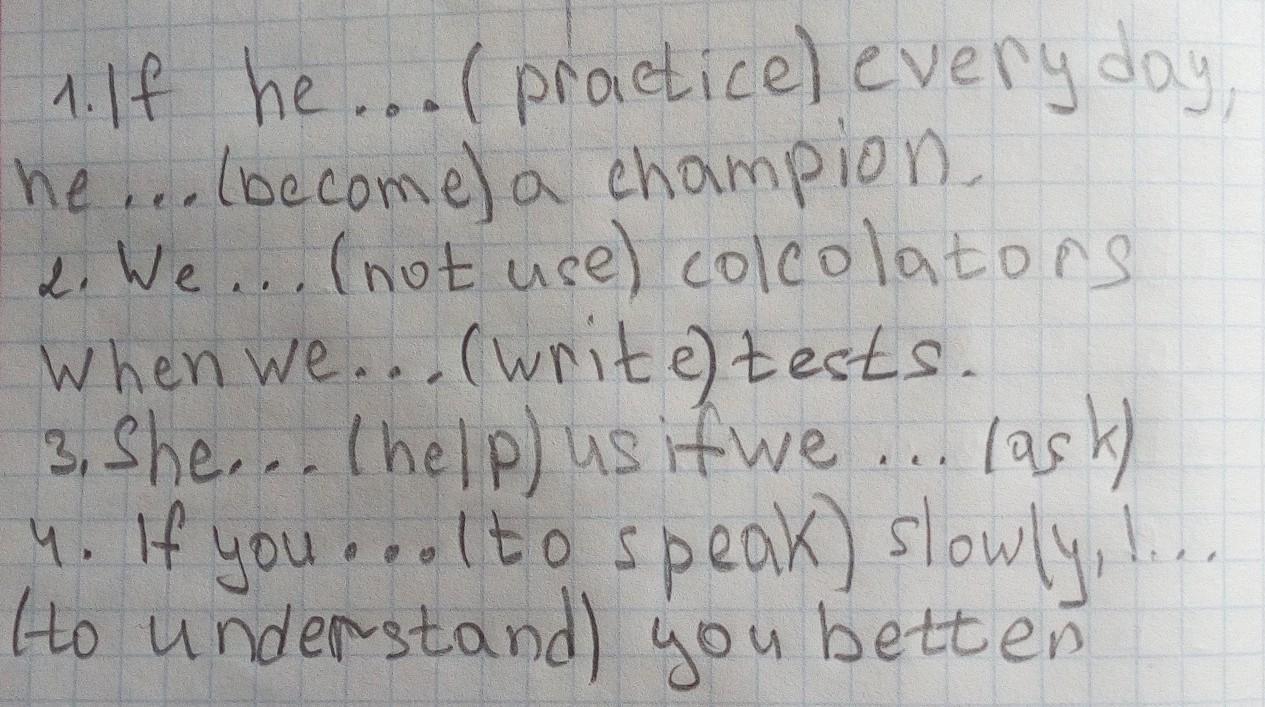 1. If he ... (practice) every day,
he ... (become) a champion.
2. We ... (not use) colcolators
when we ... (write) tests.
3. She ... (help) us if we ... (ask)
4. If you ... (to speak) slowly, I ...
(to understand) you better